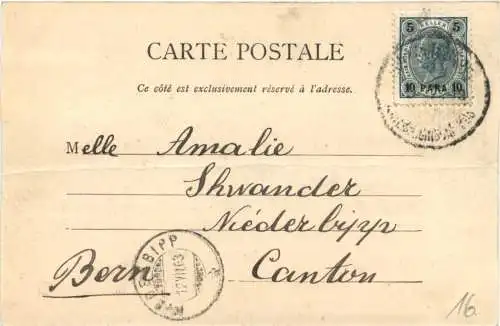 5 HELLER 5
10 PARA 10
CARTE POSTALE
Ce côté est exclusivement réservé à l'adresse.
Melle Amalie
Shwander
Niéderbipp
Bern Canton
BIPP
12.VII.03
16